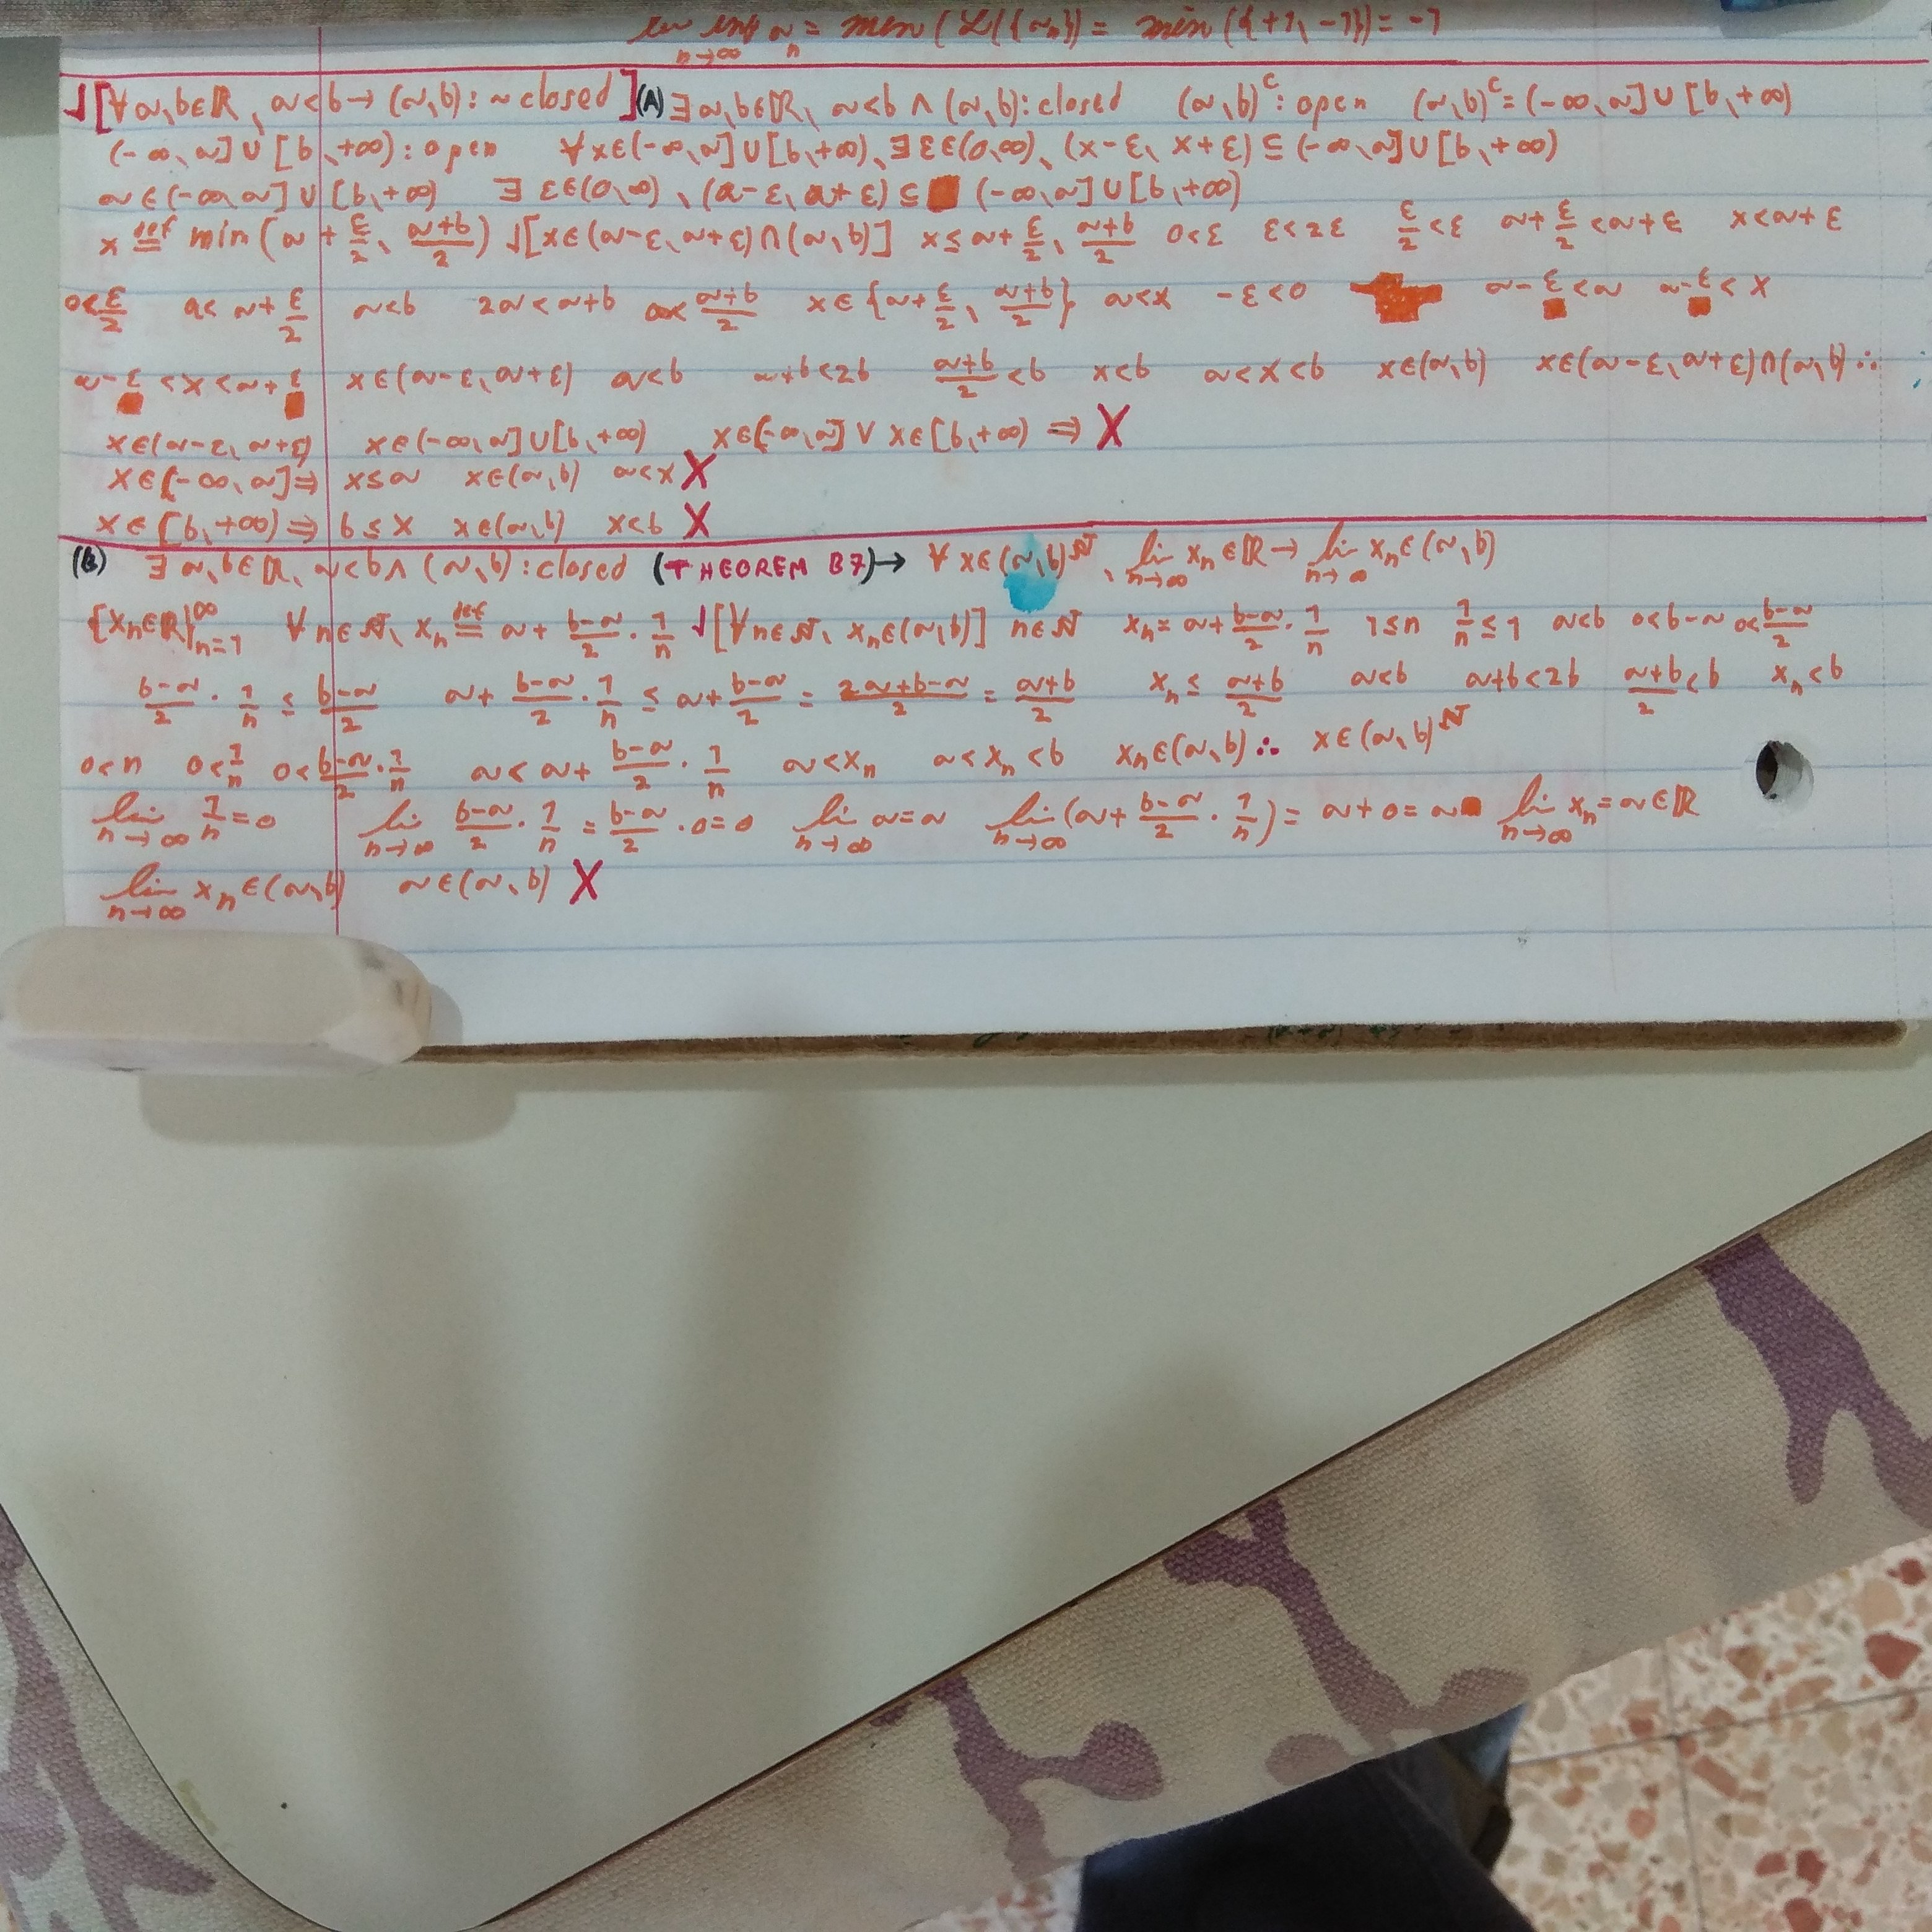 lim inf a_n = min (L({a_n})) = min ({+1, -1}) = -1
n→∞
√[∀a,b∈ℝ, a<b → (a,b): ~closed] (A) ∃a,b∈ℝ, a<b ∧ (a,b): closed (a,b)^c: open (a,b)^c = (-∞,a] ∪ [b,+∞)
(-∞,a] ∪ [b,+∞): open ∀x∈(-∞,a]∪[b,+∞), ∃ε∈(0,∞), (x-ε, x+ε) ⊆ (-∞,a]∪[b,+∞)
a∈(-∞,a] ∪ [b,+∞) ∃ ε∈(0,∞), (a-ε, a+ε) ⊆ (-∞,a] ∪ [b,+∞)
x ≝ min(a + ε/2, (a+b)/2) √[x∈(a-ε, a+ε)∩(a,b)] x ≤ a+ε/2, (a+b)/2 0<ε ε<2ε ε/2<ε a+ε/2<a+ε x<a+ε
0<ε/2 a<a+ε/2 a<b 2a<a+b a<(a+b)/2 x∈{a+ε/2, (a+b)/2} a<x -ε<0 a-ε<a a-ε<x
a-ε<x<a+ε x∈(a-ε, a+ε) a<b a+b<2b (a+b)/2<b x<b a<x<b x∈(a,b) x∈(a-ε, a+ε)∩(a,b) ∴
x∈(a-ε, a+ε) x∈(-∞,a]∪[b,+∞) x∈(-∞,a] ∨ x∈[b,+∞) ⇒ X
x∈(-∞,a] ⇒ x≤a x∈(a,b) a<x X
x∈[b,+∞) ⇒ b≤x x∈(a,b) x<b X
(B) ∃a,b∈ℝ, a<b ∧ (a,b): closed (THEOREM B7) → ∀x∈(a,b)^ℕ, lim_{n→∞} x_n∈ℝ → lim_{n→∞} x_n∈(a,b)
{x_n∈ℝ}_{n=1}^∞ ∀n∈ℕ, x_n ≝ a + (b-a)/2 · 1/n √[∀n∈ℕ, x_n∈(a,b)] n∈ℕ x_n = a + (b-a)/2 · 1/n 1≤n 1/n≤1 a<b 0<b-a 0<(b-a)/2
(b-a)/2 · 1/n ≤ (b-a)/2 a + (b-a)/2 · 1/n ≤ a + (b-a)/2 = (2a+b-a)/2 = (a+b)/2 x_n ≤ (a+b)/2 a<b a+b<2b (a+b)/2<b x_n<b
0<n 0<1/n 0<(b-a)/2 · 1/n a < a + (b-a)/2 · 1/n a<x_n a<x_n<b x_n∈(a,b) ∴ x∈(a,b)^ℕ
lim_{n→∞} 1/n = 0 lim_{n→∞} (b-a)/2 · 1/n = (b-a)/2 · 0 = 0 lim_{n→∞} a = a lim_{n→∞} (a + (b-a)/2 · 1/n) = a+0 = a lim_{n→∞} x_n = a∈ℝ
lim_{n→∞} x_n∈(a,b) a∈(a,b) X